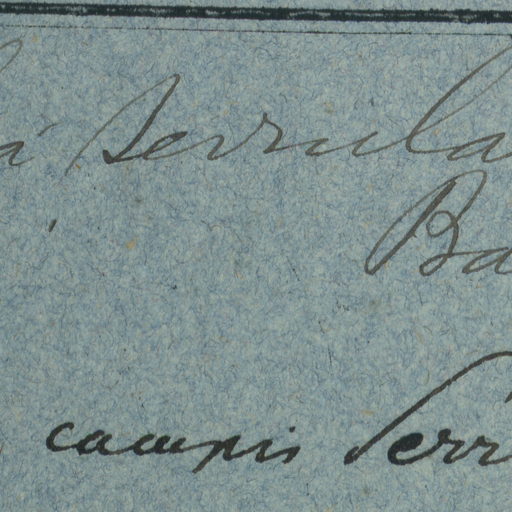 serrula
Ba
campis Serr